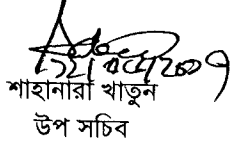 শাহানারা খাতুন
উপ সচিব